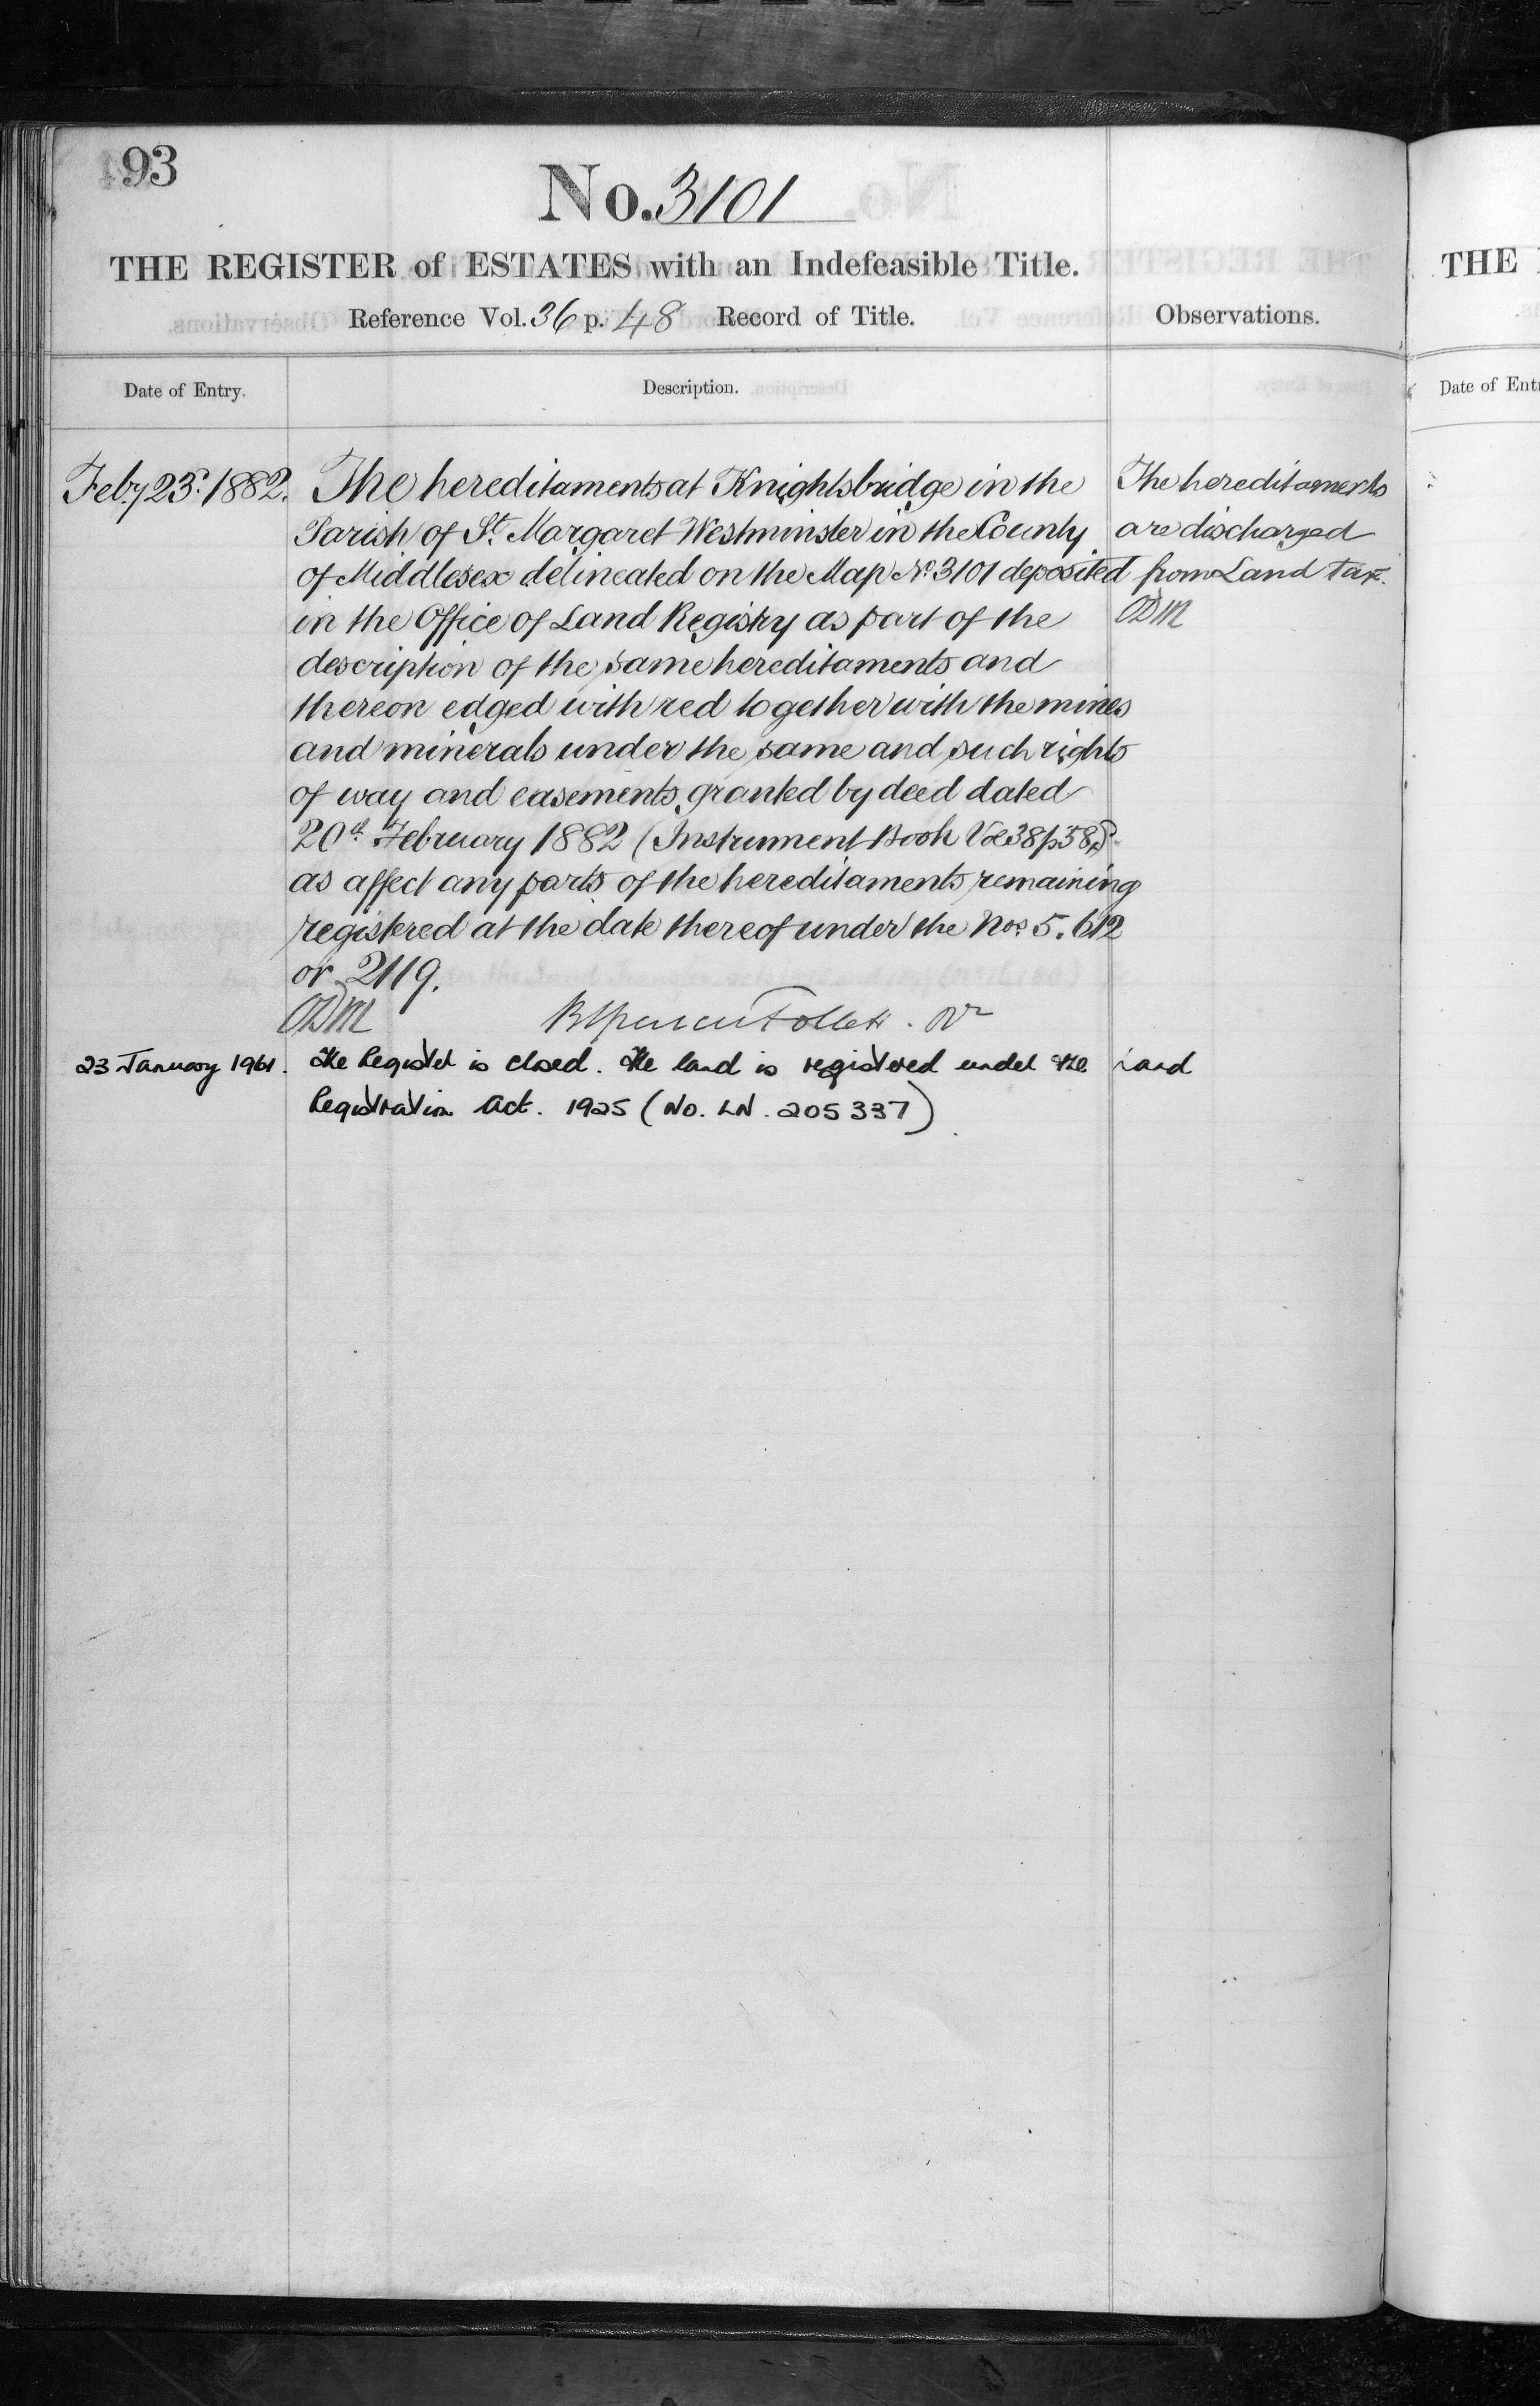 93
No. 3101
THE REGISTER of ESTATES with an Indefeasible Title.
Reference Vol. 36 p. 48 Record of Title.
Observations.
Date of Entry.
Description.
Feby 23rd. 1882.
The hereditaments at Knightsbridge in the
Parish of St. Margaret Westminster in the County
of Middlesex delineated on the Map No. 3101 deposited
in the Office of Land Registry as part of the
description of the same hereditaments and
thereon edged with red together with the mines
and minerals under the same and such rights
of way and easements granted by deed dated
20th February 1882 (Instrument Book Vol 38 p 58)
as affect any parts of the hereditaments remaining
registered at the date thereof under the Nos. 5. 612
or 2119.
ODM
Follett
The hereditaments
are discharged
from Land Tax.
ODM
23 January 1961.
The Register is closed. The land is registered under the Land
Registration Act. 1925 (No. LN. 205337)
THE
Date of Ent